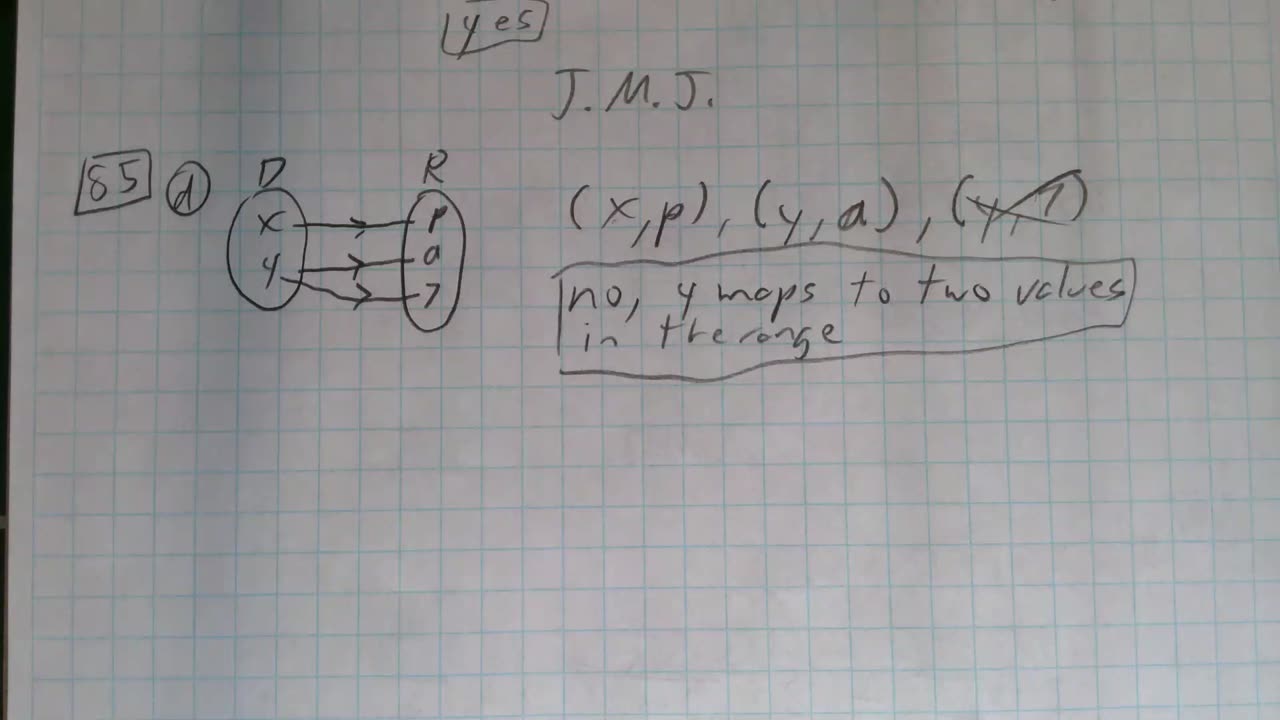 yes
J. M. J.
85 d D R
x p
y a
7
(x,p), (y,a), (y,7)
no, y maps to two values
in the range